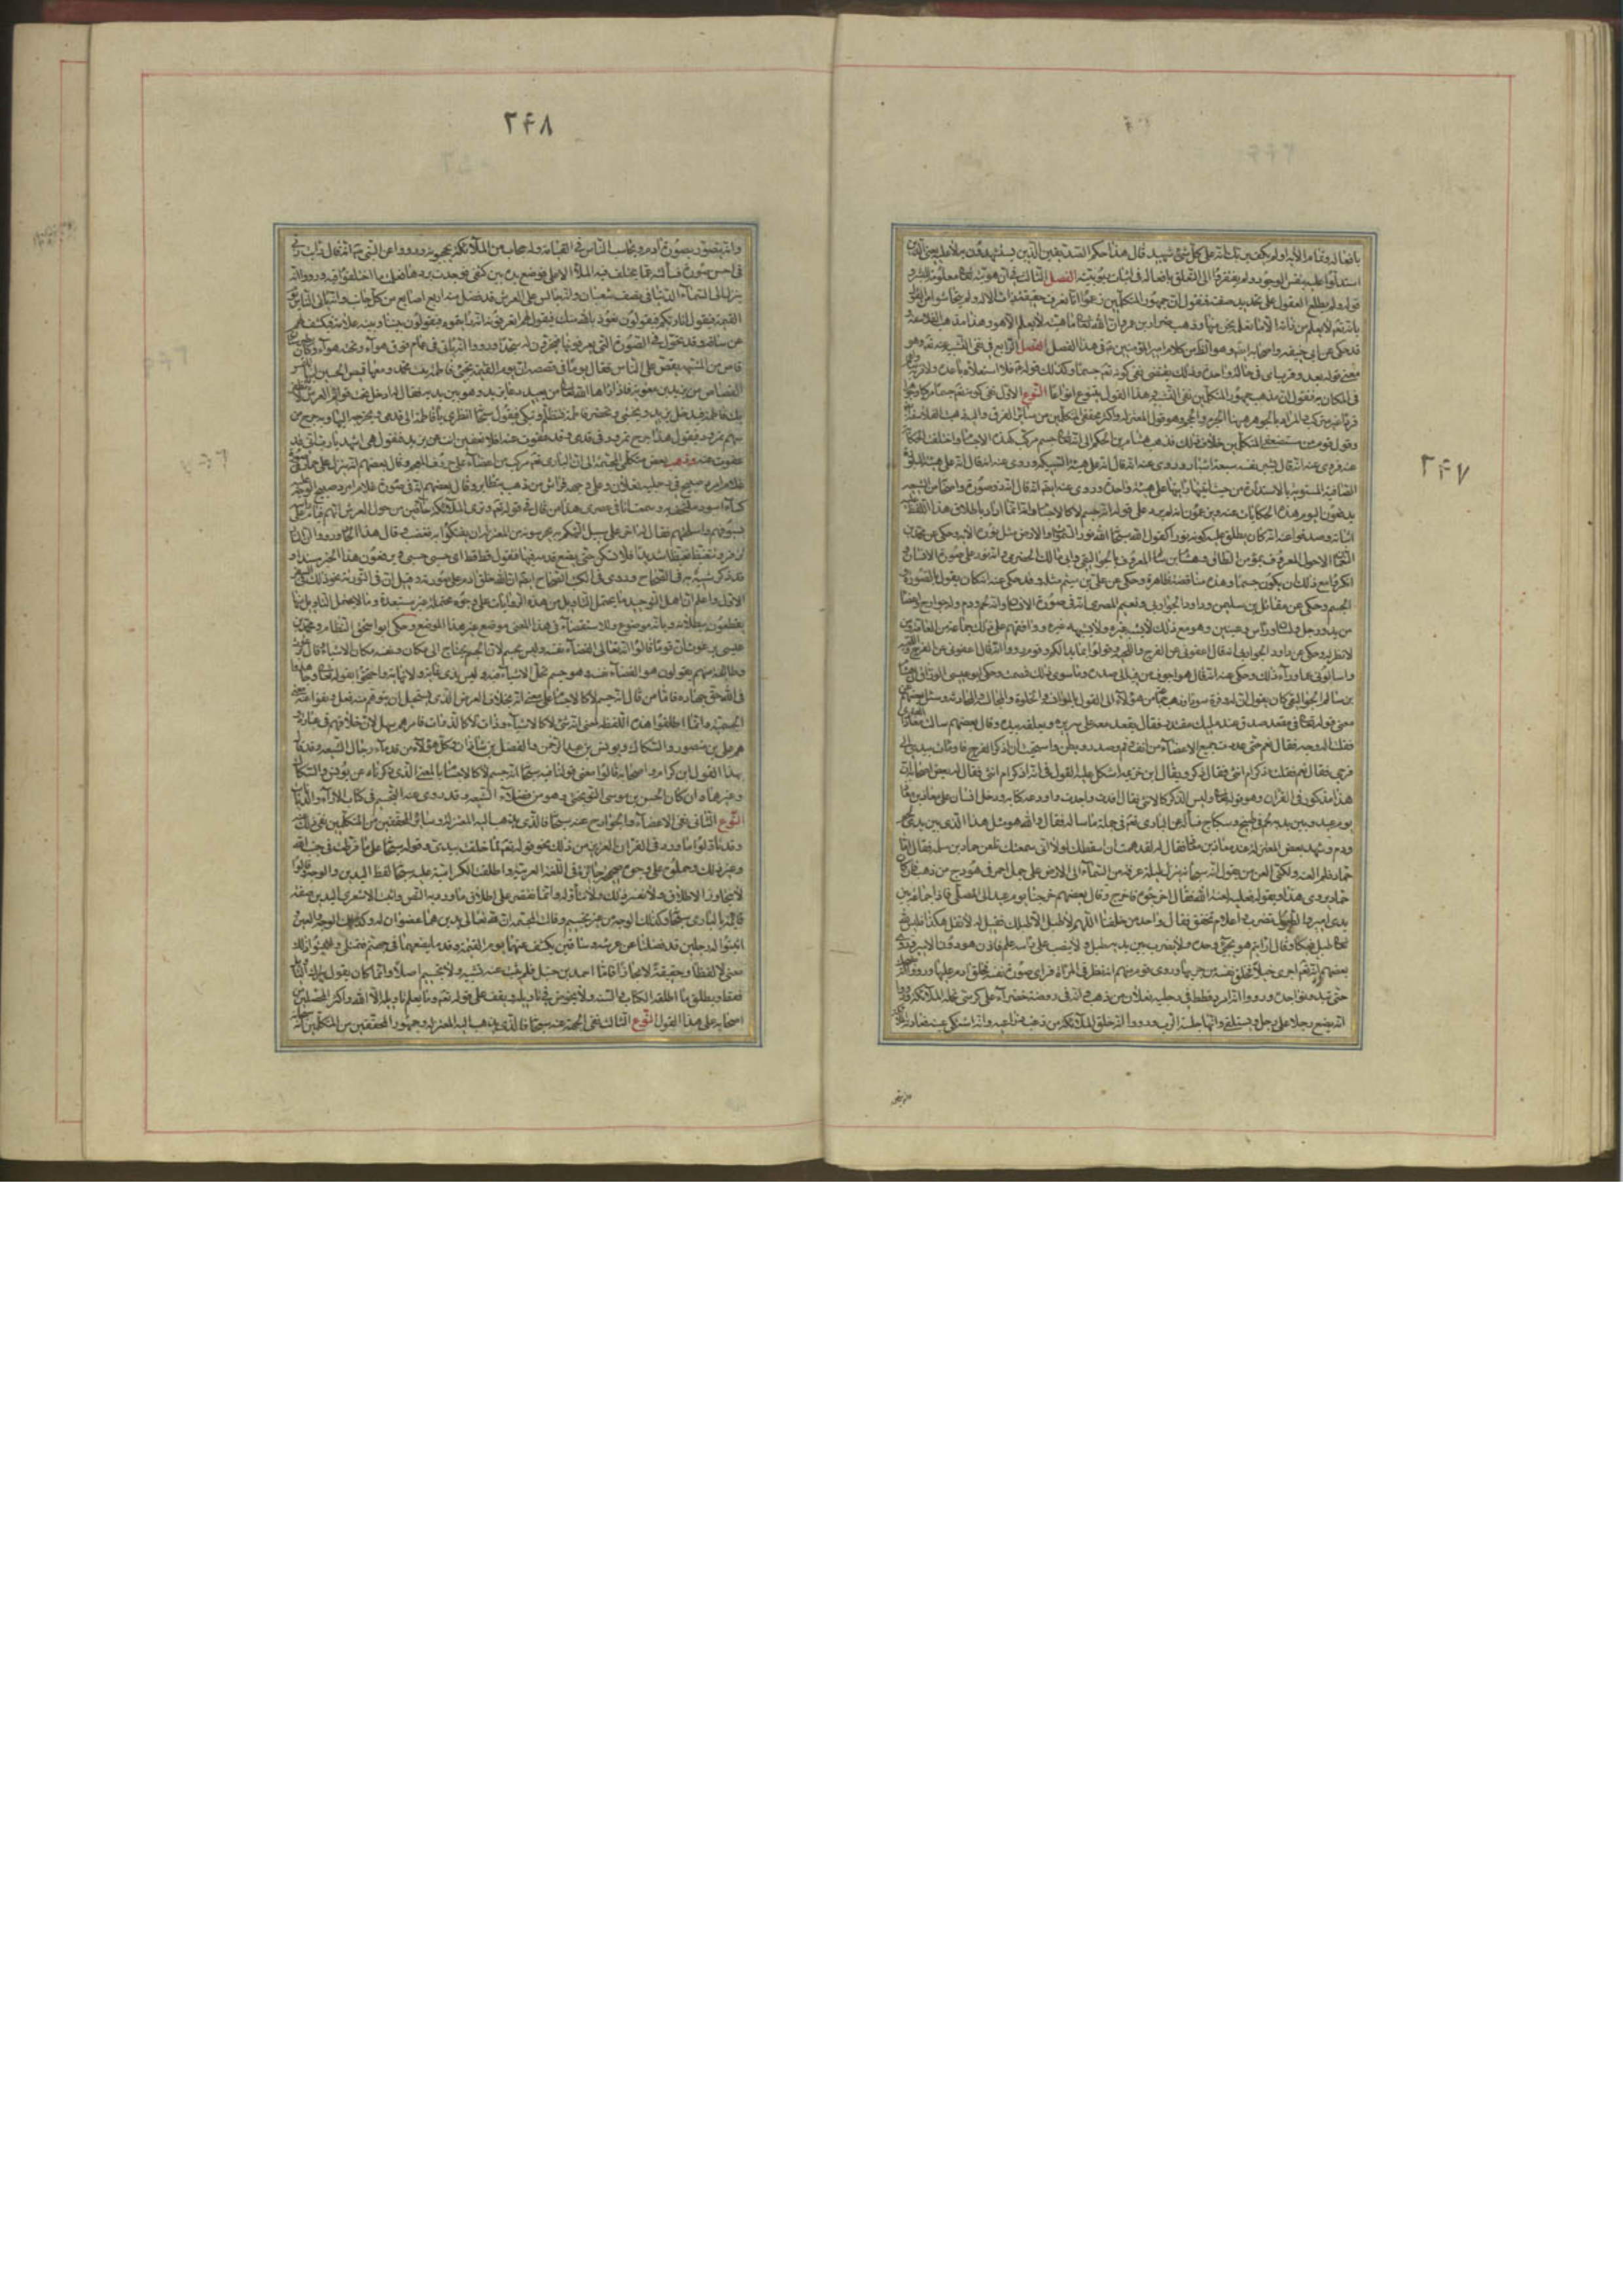 ٢۴٧
بافعاله وتمام الآية اولم يكف بربك انه على كل شئ شهيد قال هذا حكم الصديقين الذين يستشهدون به لا عليه يعني الذين
استدلوا عليه بنفس الوجود ولم يفتقروا الى التعلق بافعاله في اثبات ربوبيته الفصل الثالث
قوله ولم يطلع العقول على تحديد صفته فنقول ان جمهور المتكلمين زعموا انا نعرف حقيقة ذات الاله ولم يتحاشوا من القول
بانه تعم لا يعلم من ذاته الا ما نعلم نحن منها وذهب ضرار بن عمرو ان لله تعالى ماهية لا يعلمها الا هو وهذا مذهب الفلاسفة
قد حكى عن ابي حنيفة واصحابه ايضا وهو الظاهر من كلام امير المؤمنين ع في هذا الفصل الفصل الرابع في نفي التشبيه عنه تعم وهو
معنى قوله بعد وقرب اي في حال واحدة وذلك يقتضي نفي كونه تعم جسما وكذلك قوله ع فلا استعلاؤه باعده ولا قربه
في المكان به فنقول ان مذهب جمهور المتكلمين نفي التشبيه وهذا القول يتنوع انواعا النوع الاول نفي كونه تعم جسما مركبا او جوهرا
فردا غير مركب والمراد بالجوهر ههنا الجرم والحجم وهو قول المعتزلة واكثر محققي المتكلمين من سائر الفرق واليه ذهب الفلاسفة
وقال قوم من مستضعفي المتكلمين خلاف ذلك فذهب هشام بن الحكم الى انه تعالى جسم مركب كهذه الاجسام واختلف الحكاية
عنه فروي عنه انه قال يشبر نفسه سبعة اشبار وروي عنه انه قال انه على هيئة السبيكة وروي عنه انه قال انه على هيئة البلورة
الصافية المستوية الاستدارة من حيث اتيتها رايتها على هيئة واحدة وروي عنه ايضا انه قال انه ذو صورة واصحابه من الشيعة
يدفعون اليوم هذه الحكايات عنه ويزعمون انه لم يزد على قوله انه جسم لا كالاجسام وانه انما اراد باطلاق هذا اللفظ عليه
اثباته وصدقوا عنه انه كان يطلق عليه كونه نورا كقول الله سبحانه الله نور السموات والارض مثل نوره الآية وحكي عن محمد بن
النعمان الاحول المعروف بمؤمن الطاق وهشام بن سالم المعروف بالجواليقي وابي مالك الحضرمي انه نور على صورة الانسان و
انكروا مع ذلك ان يكون جسما وهذه مناقضة ظاهرة وحكي عن علي بن ميثم مثله وقد حكي عنه انه كان يقول بالصورة و
الجسم وحكي عن مقاتل بن سليمن وداود الجواربي ونعيم المصري انه في صورة الانسان وانه لحم ودم وله جوارح واعضاء
من يد ورجل ولسان وراس وعينين وهو مع ذلك لا يشبه غيره ولا يشبهه غيره ووافقهم على ذلك جماعة من العامة ومن
لا نظر له وحكي عن داود الجواربي انه قال اعفوني عن الفرج واللحية
واسالوني عما وراء ذلك وحكي عنه انه قال هو اجوف من فيه الى صدره وما سوى ذلك مصمت وحكى ابو عيسى الوراق ان هشام
بن سالم الجواليقي كان يقول ان له وفرة سوداء
معنى قوله تعالى في مقعد صدق عند مليك مقتدر فقال يقعد معه على سريره ويغلفه بيده وقال بعضهم سالت معاذا العنبري
فقلت اله وجه فقال نعم حتى عددت جميع الاعضاء من انف وفم وصدر وبطن واستحييت ان اذكر الفرج فاومأت بيدي الى
فرجي فقال نعم فقلت اذكر ام انثى فقال ذكر ويقال ان ابن خزيمة اشكل عليه القول في انه اذكر ام انثى فقال له بعض اصحابه ان
هذا مذكور في القران وهو قوله تعالى وليس الذكر كالانثى فقال افدت واجدت واودعه كتابه ودخل انسان على معاذ بن معاذ
يوم عيد وبين يديه لحم في طبيخ سكباج فسأله عن الباري تعم في جملة ما ساله فقال هو والله مثل هذا الذي بين يدي لحم
ودم وشهد بعض المعتزلة عند معاذ بن معاذ فقال له لقد هممت ان اسقطك لولا اني سمعتك تلعن حماد بن سلمة فقال اما
حماد فلم العنه ولكني العن من يقول انه سبحانه ينزل ليلة عرفة من السماء الى الارض على جمل احمر في هودج من ذهب فان كان
حماد يروي هذا او يقوله فعليه لعنة الله فقال اخرجوه فاخرج وقال بعضهم خرجنا يوم عيد الى المصلى فاذا جماعة بين
يدي امير والطبول تضرب والاعلام تخفق فقال واحد من خلفنا اللهم لا طبل الا طبلك فقيل له لا تقل هكذا فليس لله
تعالى طبل فبكى وقال ارايتم هو يجئ وحده ولا يضرب بين يديه طبل ولا ينصب على راسه علم فاذن هو دون الامير وروى
بعضهم انه تعم اجرى خيلا فخلق نفسه من عرقها وروى قوم منهم انه نظر في المرآة فراى صورة نفسه فخلق ادم عليها ورووا انه يضحك
حتى تبدو نواجذه ورووا انه امرد قطط في رجليه نعلان من ذهب وانه في روضة خضراء على كرسي تحمله الملائكة ورووا
انه يضع رجلا على رجل ويستلقي وانها جلسة الرب ورووا انه خلق الملائكة من زغب ذراعيه وانه اشتكى عينه فعادته
٢۴٨
وانه يتصور بصورة آدم ويحاسب الناس في القيامة وله حجاب من الملائكة يحجبونه ورووا عن النبي ص انه قال رايت ربي
في احسن صورة فسألته عما يختلف فيه الملأ الاعلى فوضع يده بين كتفي فوجدت بردها فعلمت ما اختلفوا فيه ورووا انه
ينزل الى السماء الدنيا في نصف شعبان وانه جالس على العرش قد فضل منه اربع اصابع من كل جانب وانه ياتي الناس يوم
القيمة فيقول انا ربكم فيقولون نعوذ بالله منك فيقول لهم افتعرفونه ان رايتموه فيقولون بيننا وبينه علامة فيكشف لهم
عن ساقه وقد تحول في الصورة التي يعرفونها فيخرون له سجدا ورووا انه ياتي في غمام فوقه هواء وتحته هواء وكان
قاص من المشبهة يقص على الناس فقال يوما في قصصه ان يوم القيمة تجئ فاطمة بنت محمد ومعها قميص الحسين ابنها تلتمس
القصاص من يزيد بن معوية فاذا راها الله تعالى من بعيد دعا يزيد وهو بين يديه فقال له ادخل تحت قوائم العرش لا تظفر
بك فاطمة فيدخل يزيد ويختبي وتحضر فاطمة فتتظلم وتبكي فيقول سبحانه انظري يا فاطمة الى قدمي ويخرجه اليها وبه جرح من
سهم نمرود فيقول هذا جرح نمرود في قدمي وقد عفوت عنه افلا تعفين انت عن يزيد فتقول هي اشهد يا رب اني قد
عفوت عنه وذهب بعض متكلمي المجسمة الى ان الباري تعم مركب من اعضاء على حروف المعجم وقال بعضهم انه ينزل على حمار في صورة
غلام امرد في رجليه نعلان وعلى وجهه فراش من ذهب يتطاير وقال بعضهم انه في صورة غلام امرد صبيح الوجه عليه
كساء اسود ملتحف به وسمعت انا في عصري هذا من قال في قوله تعم وترى الملائكة حافين من حول العرش انهم قيام على
بسيوفهم واسلحتهم فقال له اخر على سبيل التهكم به يحرسونه من المعتزلة ان يفتكوا به فغضب وقال هذا الحاد ورووا ان النار
تزفر وتتغيظ تغيظا شديدا فلا تسكن حتى يضع قدمه فيها فتقول قط قط اي حسبي حسبي ويرفعون هذا الخبر مسندا و
قد ذكر شبيه به في الصحاح وروي في الكتب الصحاح ايضا ان الله خلق ادم على صورته وقيل ان في التورية نحو ذلك في السفر
الاول واعلم ان اهل التوحيد ما يحتمل التاويل من هذه الروايات على وجوه محتملة غير مستبعدة وما لا يحتمل التاويل منها
يقطعون ببطلانه وبانه موضوع وللاستقصاء في هذا المعنى موضع غير هذا الموضع وحكى ابو اسحق النظام ومحمد بن
عيسى برغوث ان قوما قالوا انه تعالى الفضاء نفسه وليس بجسم لان الجسم يحتاج الى مكان ونفسه مكان الاشياء
وطائفة منهم يقولون هو الفضاء نفسه وهو جسم تحل الاشياء فيه وليس بذي غاية ولا نهاية واحتجوا بقوله تعالى وجاهدوا
في الله حق جهاده فاما من قال انه جسم لا كالاجسام على معنى انه بخلاف العرض الذي يستحيل ان يتوهم منه فعل ونفوا عنه معنى
الجسمية وانما اطلقوا هذه اللفظة لمعنى انه شئ لا كالاشياء وذات لا كالذوات فامرهم سهل لان خلافهم في عبارة و
هم علي بن منصور والسكاك ويونس بن عبد الرحمن والفضل بن شاذان وكل هؤلاء من قدماء رجال الشيعة وقد قال
بهذا القول ابن كرام واصحابه قالوا معنى قولنا فيه سبحانه انه جسم لا كالاجسام
وغيرهما وان كان الحسن بن موسى النوبختي وهو من فضلاء الشيعة وقد روى عنه التجسيم في كتاب الاراء والديانات
النوع الثاني نفي الاعضاء والجوارح عنه سبحانه فالذي يذهب اليه المعتزلة وسائر المحققين من المتكلمين نفي ذلك عنه
وقد تاولوا ما ورد في القران العزيز من ذلك نحو قوله تعم لما خلقت بيدي وقوله سبحانه على ما فرطت في جنب الله
وغير ذلك وحملوه على وجوه صحيحة جائزة في اللغة العربية واطلقت الكرامية عليه سبحانه لفظ اليدين والوجه وقالوا
لا نتجاوز الاطلاق ولا نفسر ذلك ولا نتأوله وانما نقتصر على اطلاق ما ورد به النص واثبت الاشعري اليدين صفة
قائمة بالباري سبحانه وكذلك الوجه من غير تجسيم وقالت المجسمة ان لله تعالى يدين هما عضوان له وكذلك الوجه والعين
اثبتوا له رجلين قد فضلتا عن عرشه وساقين يكشف عنهما يوم القيمة وقدما يضعها في جهنم فتمتلئ واثبتوا ذلك
معنى لا لفظا وحقيقة لا مجازا فاما احمد بن حنبل فلم يثبت عنه تشبيه ولا تجسيم اصلا وانما كان يقول بترك التاويل
فقط ويطلق ما اطلقه الكتاب والسنة ولا يخوض في تاويله ويقف على قوله تعم وما يعلم تاويله الا الله واكثر المحصلين من
اصحابه على هذا القول النوع الثالث نفي الجهة عنه سبحانه فالذي يذهب اليه المعتزلة وجمهور المحققين من المتكلمين انه